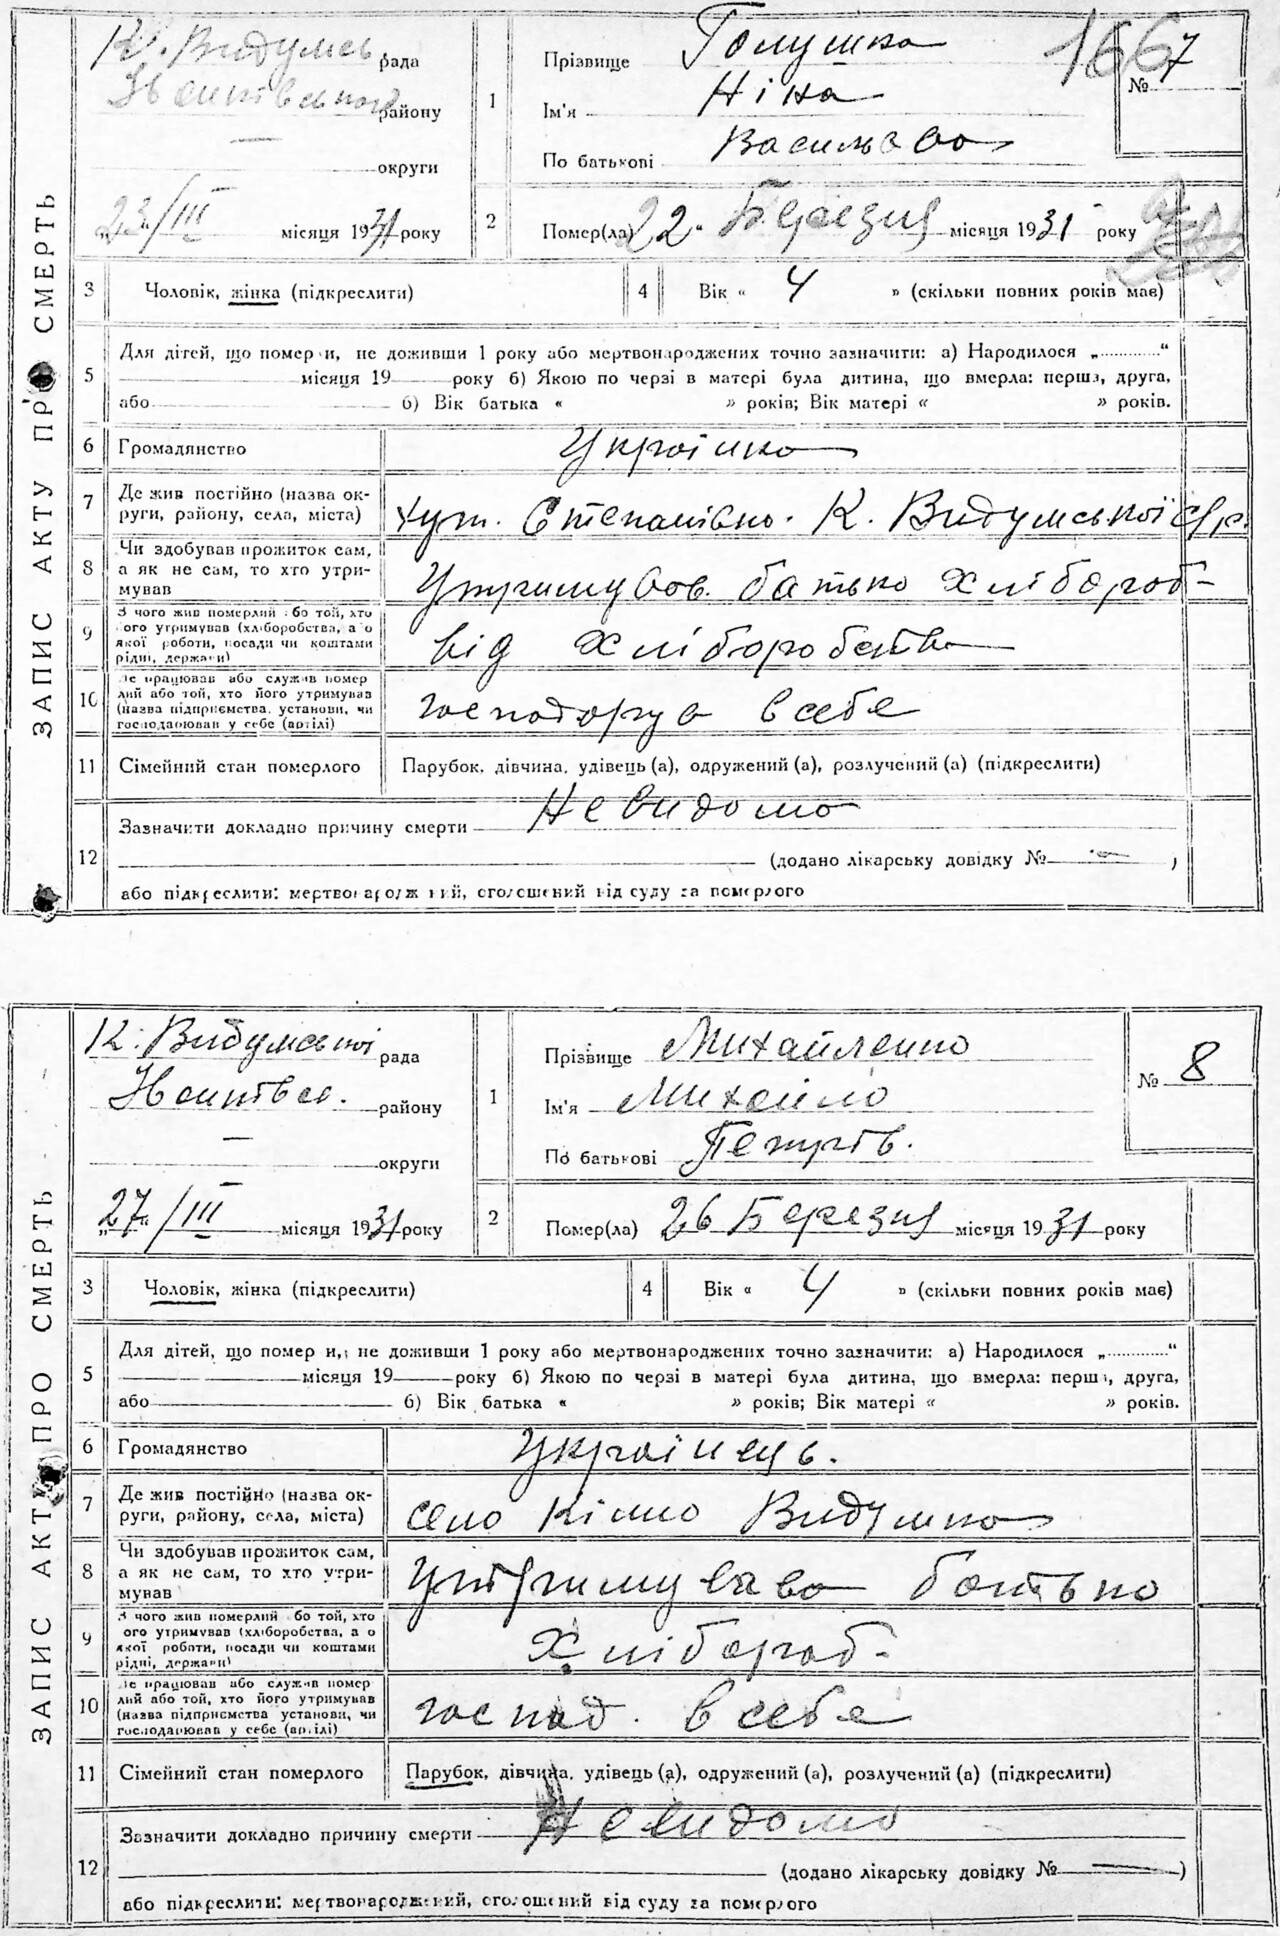 ЗАПИС АКТУ ПРО СМЕРТЬ
К. Видумсь рада
району
округи
„23"/III місяця 1931 року
1
Прізвище Галушка
Ім'я Ніна
По батькові Васильєва
166
№ 7
2
Помер(ла) 22 " Березня місяця 1931 року
3 Чоловік, жінка (підкреслити)
4 Вік « 4 » (скільки повних років має)
5 Для дітей, що померли, не доживши 1 року або мертвонароджених точно зазначити: а) Народилося „............“
місяця 19 року б) Якою по черзі в матері була дитина, що вмерла: перша, друга,
або б) Вік батька « » років; Вік матері « » років.
6 Громадянство Українка
7 Де жив постійно (назва ок-
руги, району, села, міста) хут. Степанівка. К. Видумської с/р.
8 Чи здобував прожиток сам,
а як не сам, то хто утри-
мував Утримував. батько хлібороб-
9 З чого жив померлий або той, хто
його утримував (хліборобства, або
якої роботи, посади чи коштами
рідні, держави) від хліборобства
10 Де працював або служив помер
лий або той, хто його утримував
(назва підприємства, установи, чи
господарював у себе (артілі) господарував в себе
11 Сімейний стан померлого Парубок, дівчина, удівець (а), одружений (а), розлучений (а) (підкреслити)
12 Зазначити докладно причину смерти Невидомо
(додано лікарську довідку № — )
або підкреслити: мертвонароджений, оголошений від суду за померлого
ЗАПИС АКТУ ПРО СМЕРТЬ
К. Видумської рада
району
округи
„27"/III місяця 1931 року
1
Прізвище Михайленко
Ім'я Михайло
По батькові Петрів.
№ 8
2
Помер(ла) 26 Березня місяця 1931 року
3 Чоловік, жінка (підкреслити)
4 Вік « 4 » (скільки повних років має)
5 Для дітей, що померли, не доживши 1 року або мертвонароджених точно зазначити: а) Народилося „............“
місяця 19 року б) Якою по черзі в матері була дитина, що вмерла: перша, друга,
або б) Вік батька « » років; Вік матері « » років.
6 Громадянство Українець.
7 Де жив постійно (назва ок-
руги, району, села, міста) село Кітно Видумка
8 Чи здобував прожиток сам,
а як не сам, то хто утри-
мував утримував батько
9 З чого жив померлий або той, хто
його утримував (хліборобства, або
якої роботи, посади чи коштами
рідні, держави) хлібороб-
10 Де працював або служив помер
лий або той, хто його утримував
(назва підприємства установи, чи
господарював у себе (артілі) господ. в себе
11 Сімейний стан померлого Парубок, дівчина, удівець (а), одружений (а), розлучений (а) (підкреслити)
12 Зазначити докладно причину смерти Невидомо
(додано лікарську довідку № — )
або підкреслити: мертвонароджений, оголошений від суду за померлого